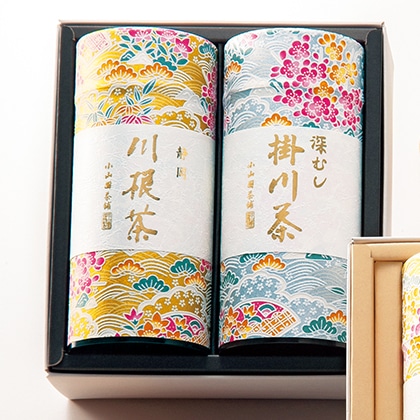 深むし
掛川茶
小山園茶舗
静岡
川根茶
小山園茶舗